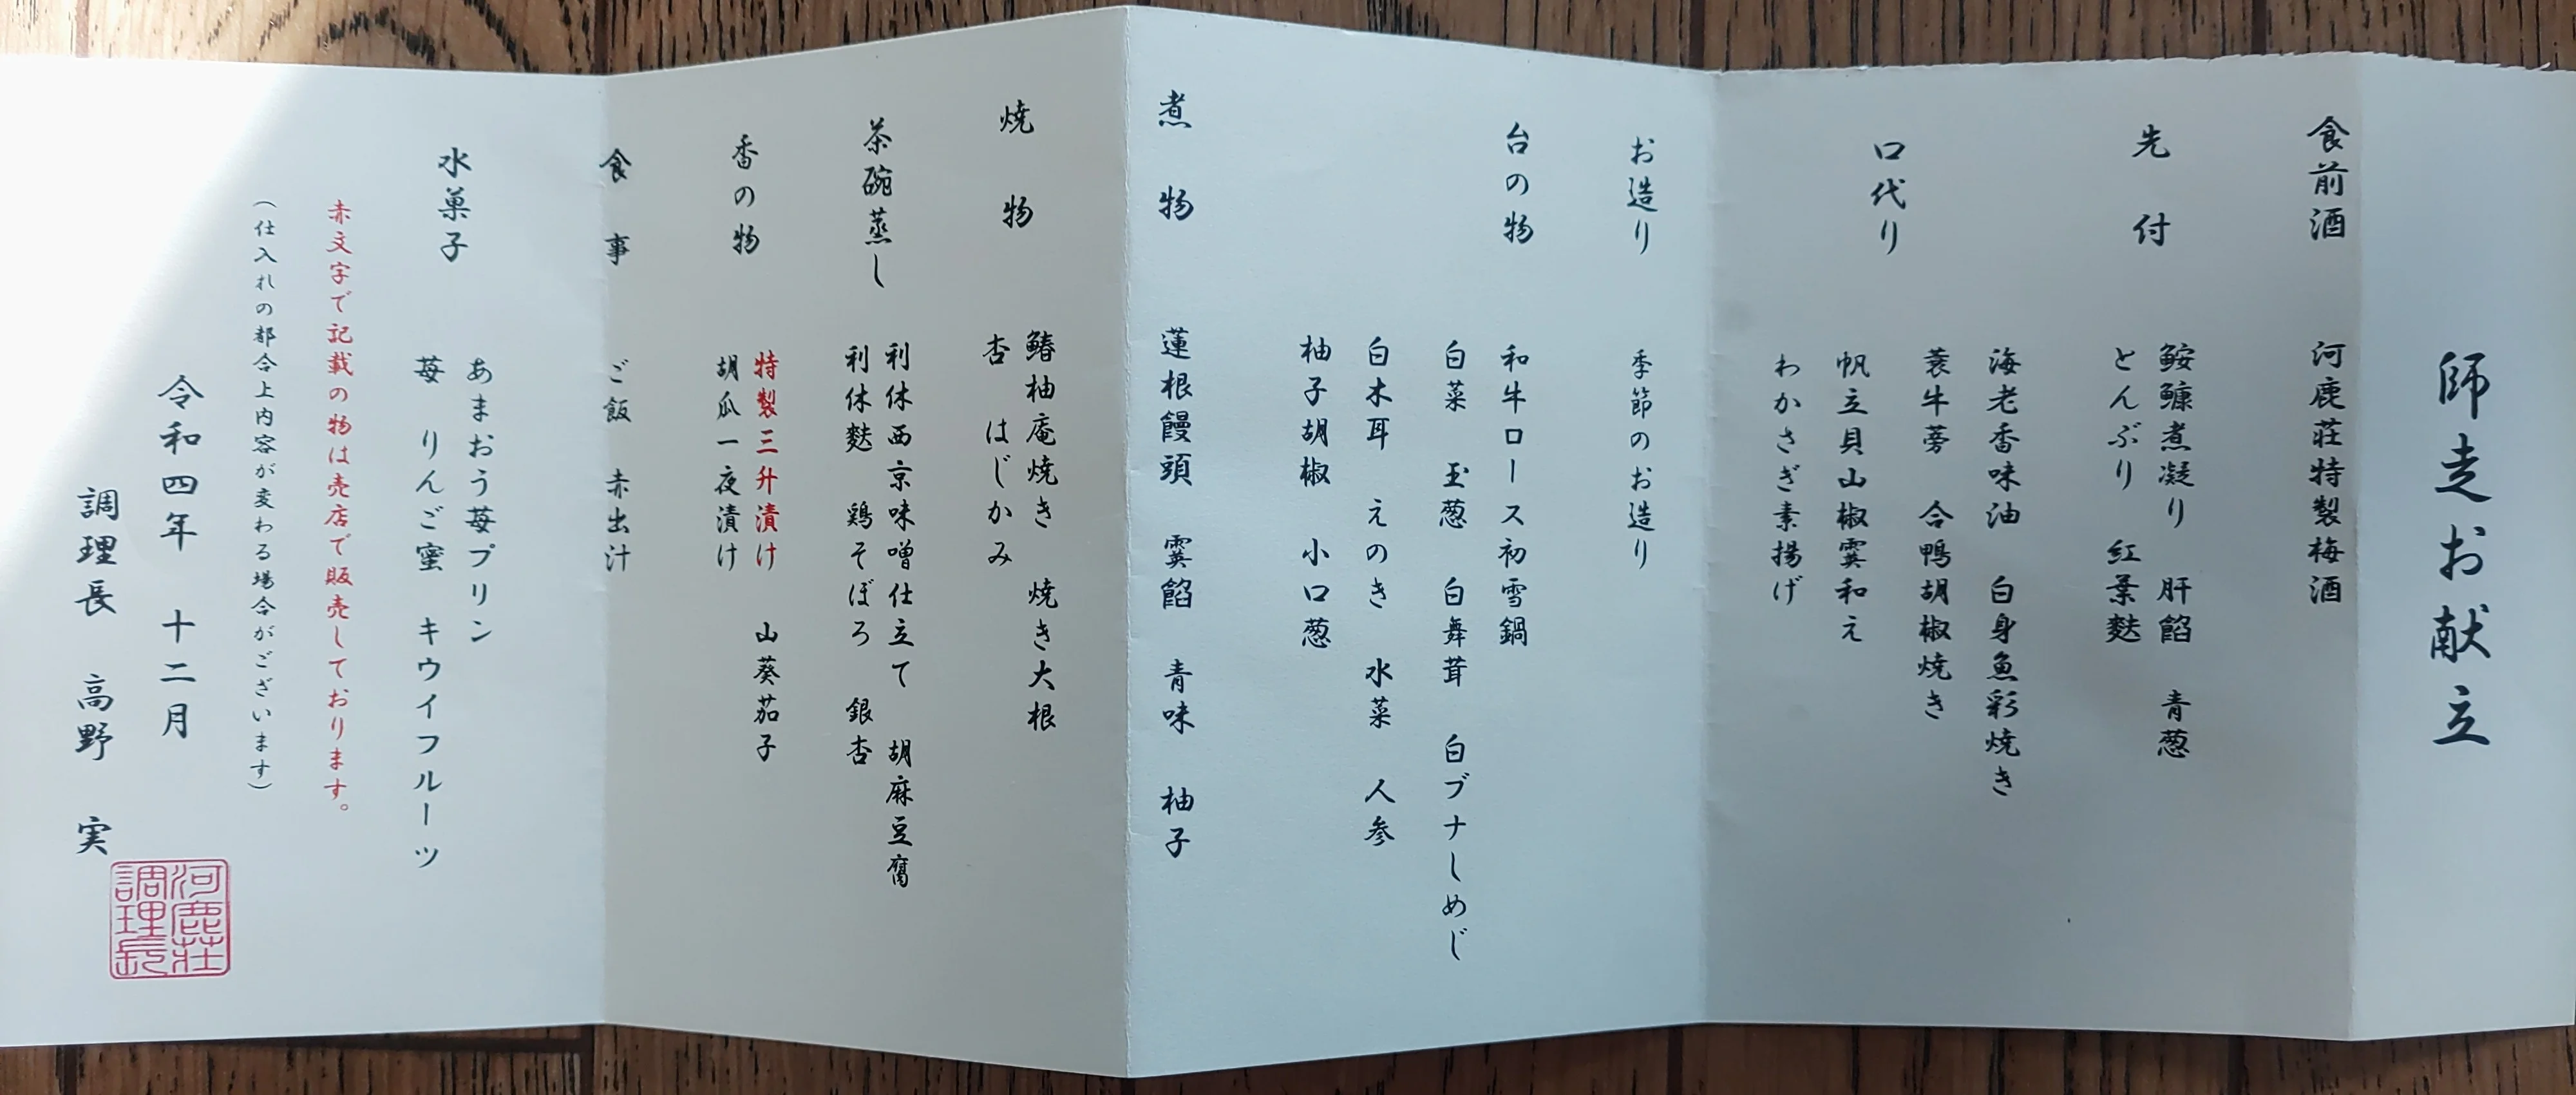 師走お献立
食前酒 河鹿荘特製梅酒
先付 鮟鱇煮凝り 肝餡 青葱
とんぶり 紅葉麩
口代り
海老香味油 白身魚彩焼き
蓑牛蒡 合鴨胡椒焼き
帆立貝山椒霙和え
わかさぎ素揚げ
お造り 季節のお造り
台の物 和牛ロース初雪鍋
白菜 玉葱 白舞茸 白ブナしめじ
白木耳 えのき 水菜 人参
柚子胡椒 小口葱
煮物 蓮根饅頭 霙餡 青味 柚子
焼物 鰆柚庵焼き 焼き大根
杏 はじかみ
茶碗蒸し 利休西京味噌仕立て 胡麻豆腐
利休麩 鶏そぼろ 銀杏
香の物 特製三升漬け 山葵茄子
胡瓜一夜漬け
食事 ご飯 赤出汁
水菓子 あまおう苺プリン
苺 りんご蜜 キウイフルーツ
赤文字で記載の物は売店で販売しております。
(仕入れの都合上内容が変わる場合がございます)
令和四年 十二月
調理長 高野 実
河鹿荘
調理長